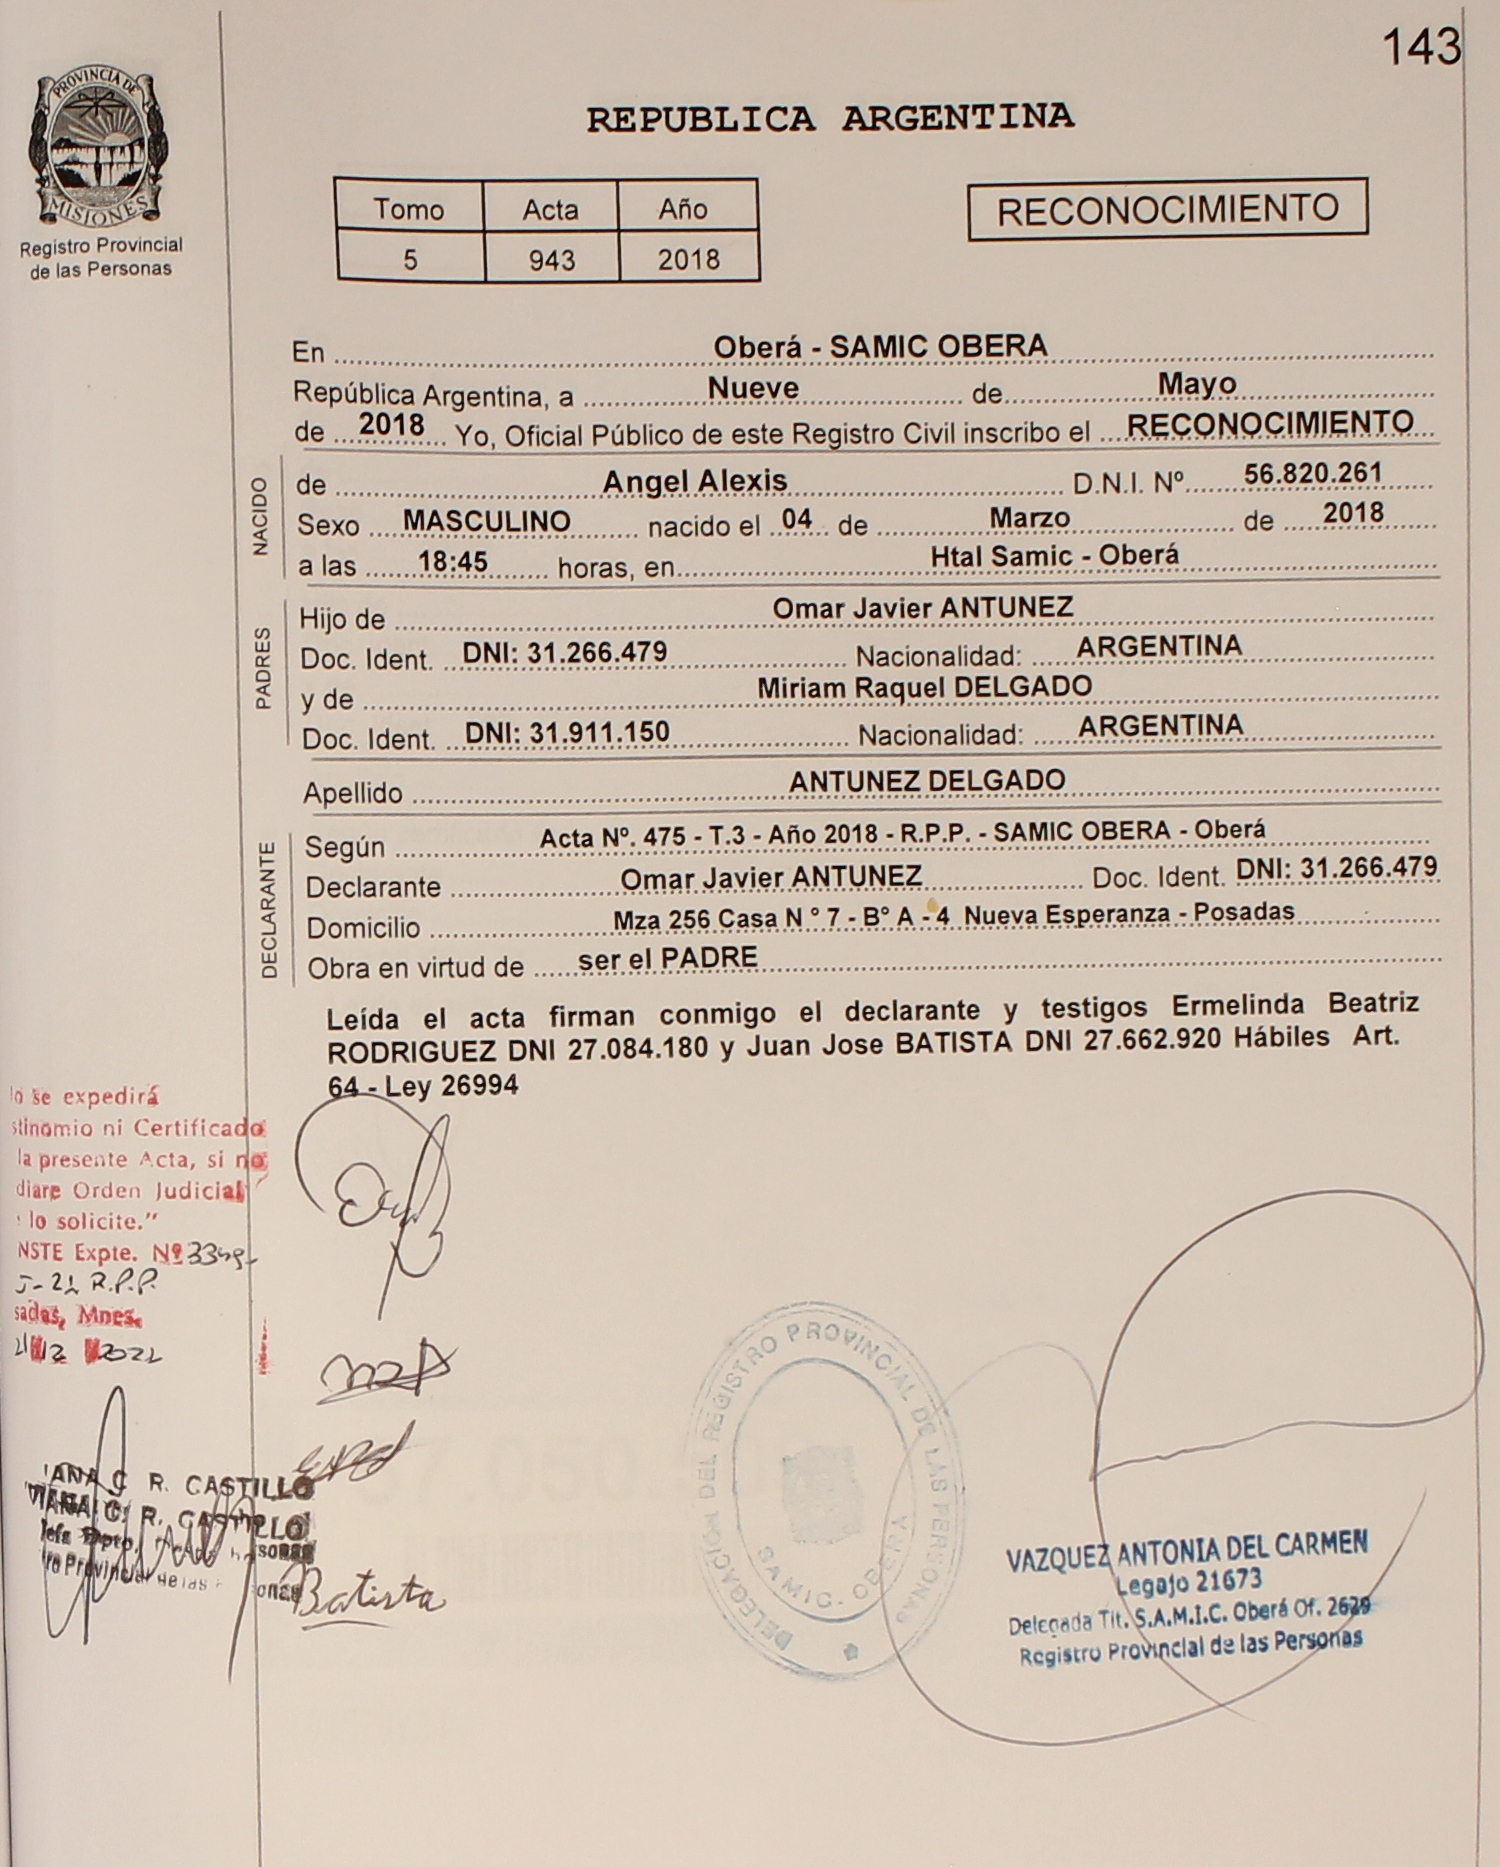 143
PROVINCIA DE
MISIONES
Registro Provincial
de las Personas
REPUBLICA ARGENTINA
Tomo Acta Año
5 943 2018
RECONOCIMIENTO
En Oberá - SAMIC OBERA
República Argentina, a Nueve de Mayo
de 2018 Yo, Oficial Público de este Registro Civil inscribo el RECONOCIMIENTO
NACIDO
de Angel Alexis D.N.I. Nº 56.820.261
Sexo MASCULINO nacido el 04 de Marzo de 2018
a las 18:45 horas, en Htal Samic - Oberá
PADRES
Hijo de Omar Javier ANTUNEZ
Doc. Ident. DNI: 31.266.479 Nacionalidad: ARGENTINA
y de Miriam Raquel DELGADO
Doc. Ident. DNI: 31.911.150 Nacionalidad: ARGENTINA
Apellido ANTUNEZ DELGADO
DECLARANTE
Según Acta Nº. 475 - T.3 - Año 2018 - R.P.P. - SAMIC OBERA - Oberá
Declarante Omar Javier ANTUNEZ Doc. Ident. DNI: 31.266.479
Domicilio Mza 256 Casa N ° 7 - B° A - 4 Nueva Esperanza - Posadas
Obra en virtud de ser el PADRE
Leída el acta firman conmigo el declarante y testigos Ermelinda Beatriz
RODRIGUEZ DNI 27.084.180 y Juan Jose BATISTA DNI 27.662.920 Hábiles Art.
64 - Ley 26994
lo se expedirá
stinomio ni Certificado
la presente Acta, si no
diare Orden Judicial
lo solicite."
NSTE Expte. Nº
J-21 R.P.P.
sadas, Mnes.
R. CASTILLO
R. CASTILLO
Jefa Dpto,
Batista
DELEGACIÓN DEL REGISTRO PROVINCIAL DE LAS PERSONAS
SAMIC. OBERA
VAZQUEZ ANTONIA DEL CARMEN
Legajo 21673
Delegada Tit. S.A.M.I.C. Oberá Of. 2629
Registro Provincial de las Personas